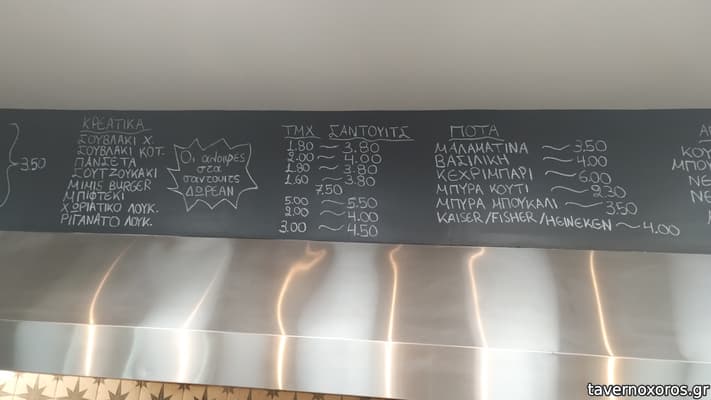 3.50
ΚΡΕΑΤΙΚΑ
ΣΟΥΒΛΑΚΙ Χ.
ΣΟΥΒΛΑΚΙ ΚΟΤ.
ΠΑΝΣΕΤΑ
ΣΟΥΤΖΟΥΚΑΚΙ
MIMIS BURGER
ΜΠΙΦΤΕΚΙ
ΧΩΡΙΑΤΙΚΟ ΛΟΥΚ.
ΡΙΓΑΝΑΤΟ ΛΟΥΚ.
Οι
στα
σαντουιτς
ΔΩΡΕΑΝ
ΤΜΧ ΣΑΝΤΟΥΙΤΣ
1.80 ~ 3.80
2.00 ~ 4.00
1.80 ~ 3.80
1.60 ~ 3.80
7.50
5.00 ~ 5.50
2.00 ~ 4.00
3.00 ~ 4.50
ΠΟΤΑ
ΜΑΛΑΜΑΤΙΝΑ ~ 3.50
ΒΑΣΙΛΙΚΗ ~ 4.00
ΚΕΧΡΙΜΠΑΡΙ ~ 6.00
ΜΠΥΡΑ ΚΟΥΤΙ ~ 2.30
ΜΠΥΡΑ ΜΠΟΥΚΑΛΙ ~ 3.50
KAISER/FISHER/HEINEKEN ~ 4.00
ΚΟΥ
ΜΠΟ
ΝΕ
ΝΕ
tavernoxoros.gr